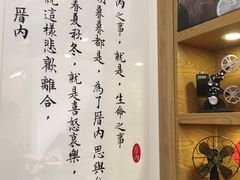 內之事，就是，生命之事
暮暮都是，為了厝內思與
春夏秋冬，就是喜怒哀樂，
就這樣悲歡離合，
厝內